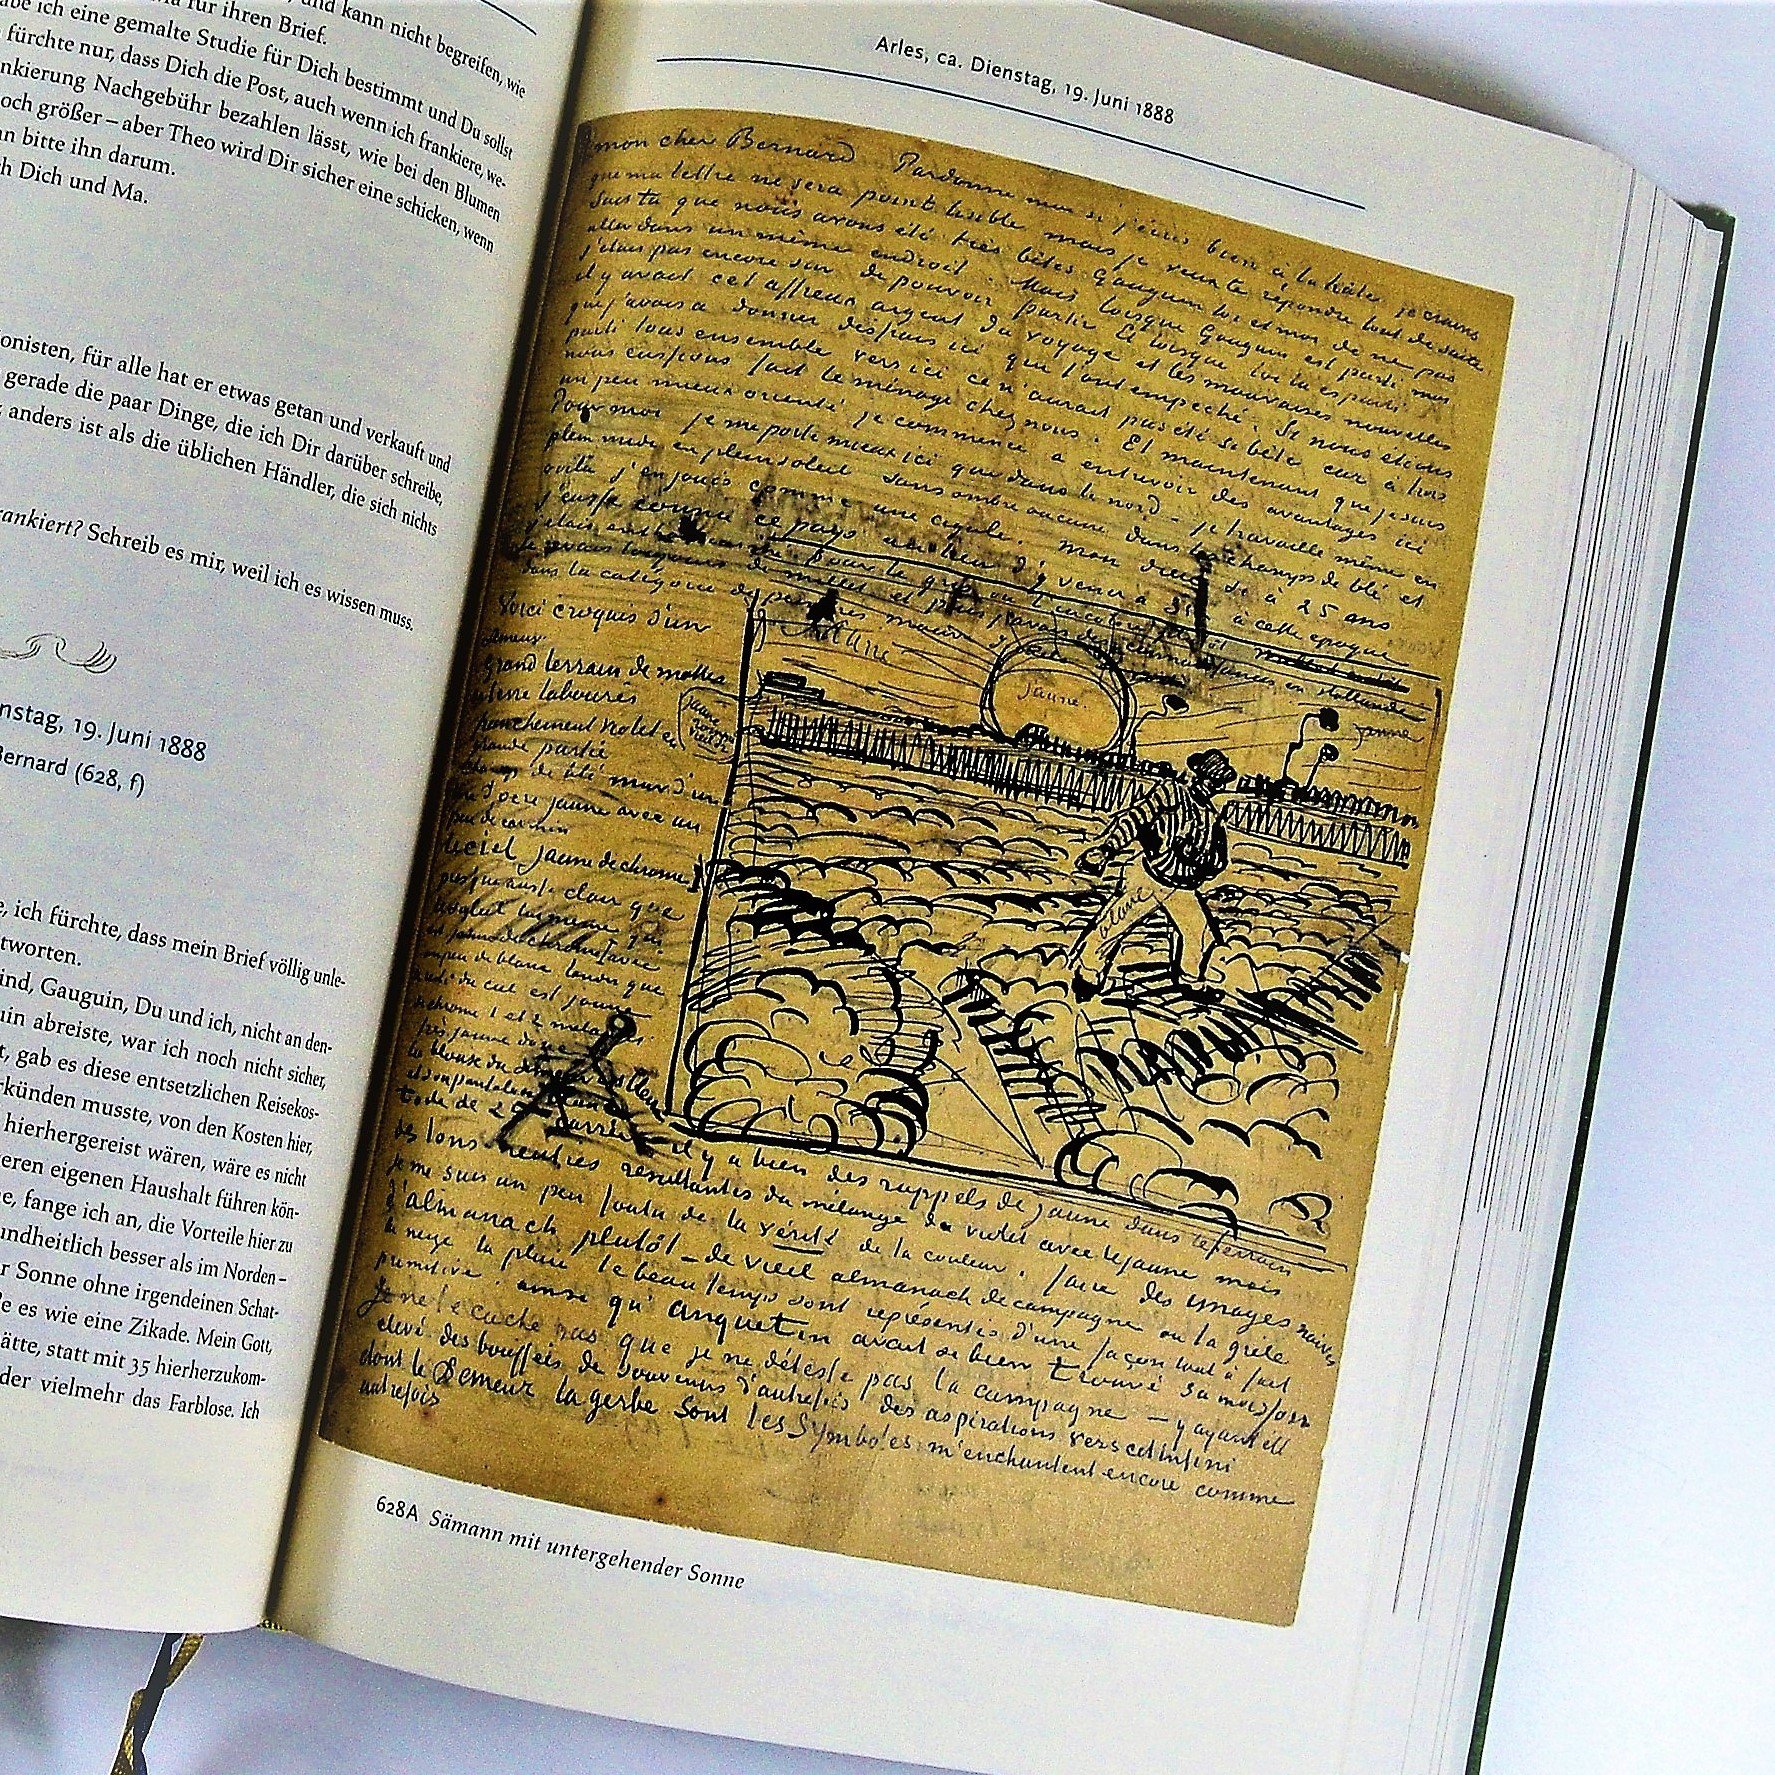 und kann nicht begreifen, wie
für ihren Brief.
abe ich eine gemalte Studie für Dich bestimmt und Du sollst
fürchte nur, dass Dich die Post, auch wenn ich frankiere, we-
nkierung Nachgebühr bezahlen lässt, wie bei den Blumen
och größer – aber Theo wird Dir sicher eine schicken, wenn
nn bitte ihn darum.
h Dich und Ma.
onisten, für alle hat er etwas getan und verkauft und
gerade die paar Dinge, die ich Dir darüber schreibe,
anders ist als die üblichen Händler, die sich nichts
rankiert? Schreib es mir, weil ich es wissen muss.
nstag, 19. Juni 1888
Bernard (628, f)
e, ich fürchte, dass mein Brief völlig unle-
tworten.
ind, Gauguin, Du und ich, nicht an den-
uin abreiste, war ich noch nicht sicher,
t, gab es diese entsetzlichen Reisekos-
künden musste, von den Kosten hier,
hierhergereist wären, wäre es nicht
eren eigenen Haushalt führen kön-
e, fange ich an, die Vorteile hier zu
undheitlich besser als im Norden –
r Sonne ohne irgendeinen Schat-
e es wie eine Zikade. Mein Gott,
ätte, statt mit 35 hierherzukom-
der vielmehr das Farblose. Ich
Arles, ca. Dienstag, 19. Juni 1888
mon cher Bernard Pardonne moi si j'écris bien à la hâte je crains
que ma lettre ne sera point lisible mais je veux te répondre tout de suite.
Sais tu que nous avons été très bêtes Gauguin toi et moi de ne pas
aller dans un même endroit. Mais lorsque Gauguin est parti moi
j'étais pas encore sûr de pouvoir partir Et lorsque toi tu es parti
il y avait cet affreux argent du voyage et les mauvaises nouvelles
que j'avais à donner des frais ici qui l'ont empeché. Si nous étions
parti tous ensemble vers ici ce n'aurait pas été si bête car à trois
nous eussions fait le ménage chez nous. Et maintenant que je suis
un peu mieux orienté je commence à entrevoir des avantages ici
Pour moi je me porte mieux ici que dans le nord – je travaille même en
plein midi en plein soleil sans ombre aucune dans les champs de blé et
voilà j'en jouis comme une cigale. mon dieu si à 25 ans
j'eusse connu ce pays au lieu d'y venir à 35 – à cette epoque
Voici croquis d'un
semeur.
grand terrain de mottes
de terre labourés
franchement violet en
grande partie
champ de blé mur d'un
ton d'ocre jaune avec un
peu de carmin
Le ciel jaune de chrome 1
presqu'aussi clair que
jaune de chrome 1 avec
un peu de blanc tandis que
du ciel est jaune
chrome 1 et 2 mélangés
jaune
jaune
jaune
blanc
toile de 25
il y a bien des rappels de jaune dans le terrain
des tons neutres résultantes du mélange du violet avec le jaune mais
je me suis un peu foutu de la vérité de la couleur. faire des images naïves
d'almanach plutôt – de vieil almanach de campagne ou la grêle
la neige la pluie le beau temps sont représentés d'une façon tout à fait
primitive. ainsi qu'Anquetin avait si bien trouvé sa moisson
Je ne te cache pas que je ne déteste pas la campagne – y ayant été
elevé des bouffées de souvenirs d'autrefois des aspirations vers cet infini
dont le Semeur la gerbe sont les Symboles m'enchantent encore comme
autrefois
628A Sämann mit untergehender Sonne